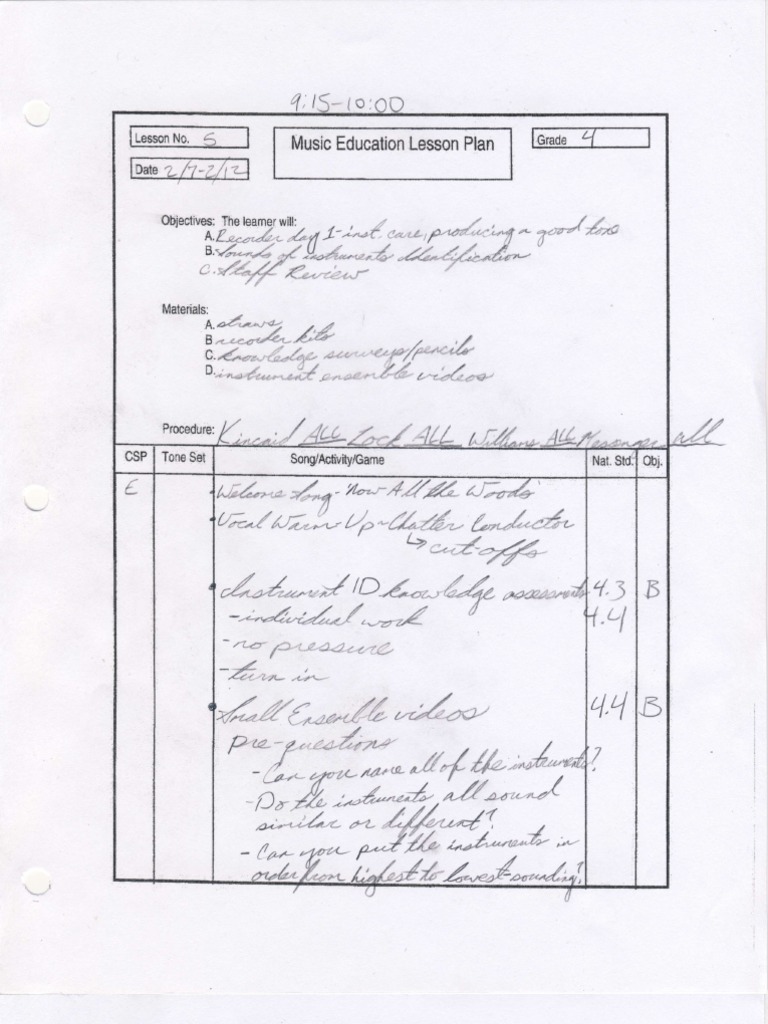 9:15-10:00
Lesson No. 5
Music Education Lesson Plan
Grade 4
Date 2/7-2/12
Objectives: The learner will:
A. Recorder day 1-inst. care, producing a good tone
B. Sounds of instruments Identification
C. Staff Review
Materials:
A. straws
B recorder kits
C. knowledge surveys/pencils
D. instrument ensemble videos
Procedure: Kincaid ALL Lock ALL Williams ALL all
CSP Tone Set Song/Activity/Game Nat. Std. Obj.
E • Welcome Song - Now All the Woods
• Vocal Warm Up - Chatter Conductor
↳ cut-offs
• Instrument ID knowledge assessments 4.3 B
- individual work 4.4
- no pressure
- turn in
• Small Ensemble videos 4.4 B
pre-questions
- Can you name all of the instruments?
- Do the instruments all sound
similar or different?
- Can you put the instruments in
order from highest to lowest-sounding?